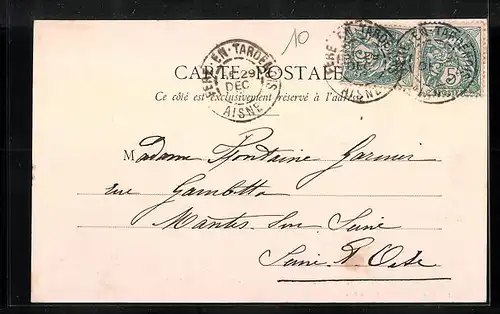 10
CARTE POSTALE
Ce côté est exclusivement réservé à l'adresse
FERE-EN-TARDENOIS
29
DEC
AISNE
FERE-EN-TARDENOIS
29
DEC
AISNE
5
Madame Fontaine Garnier
rue Gambetta
Mantes sur Seine
Seine & Oise